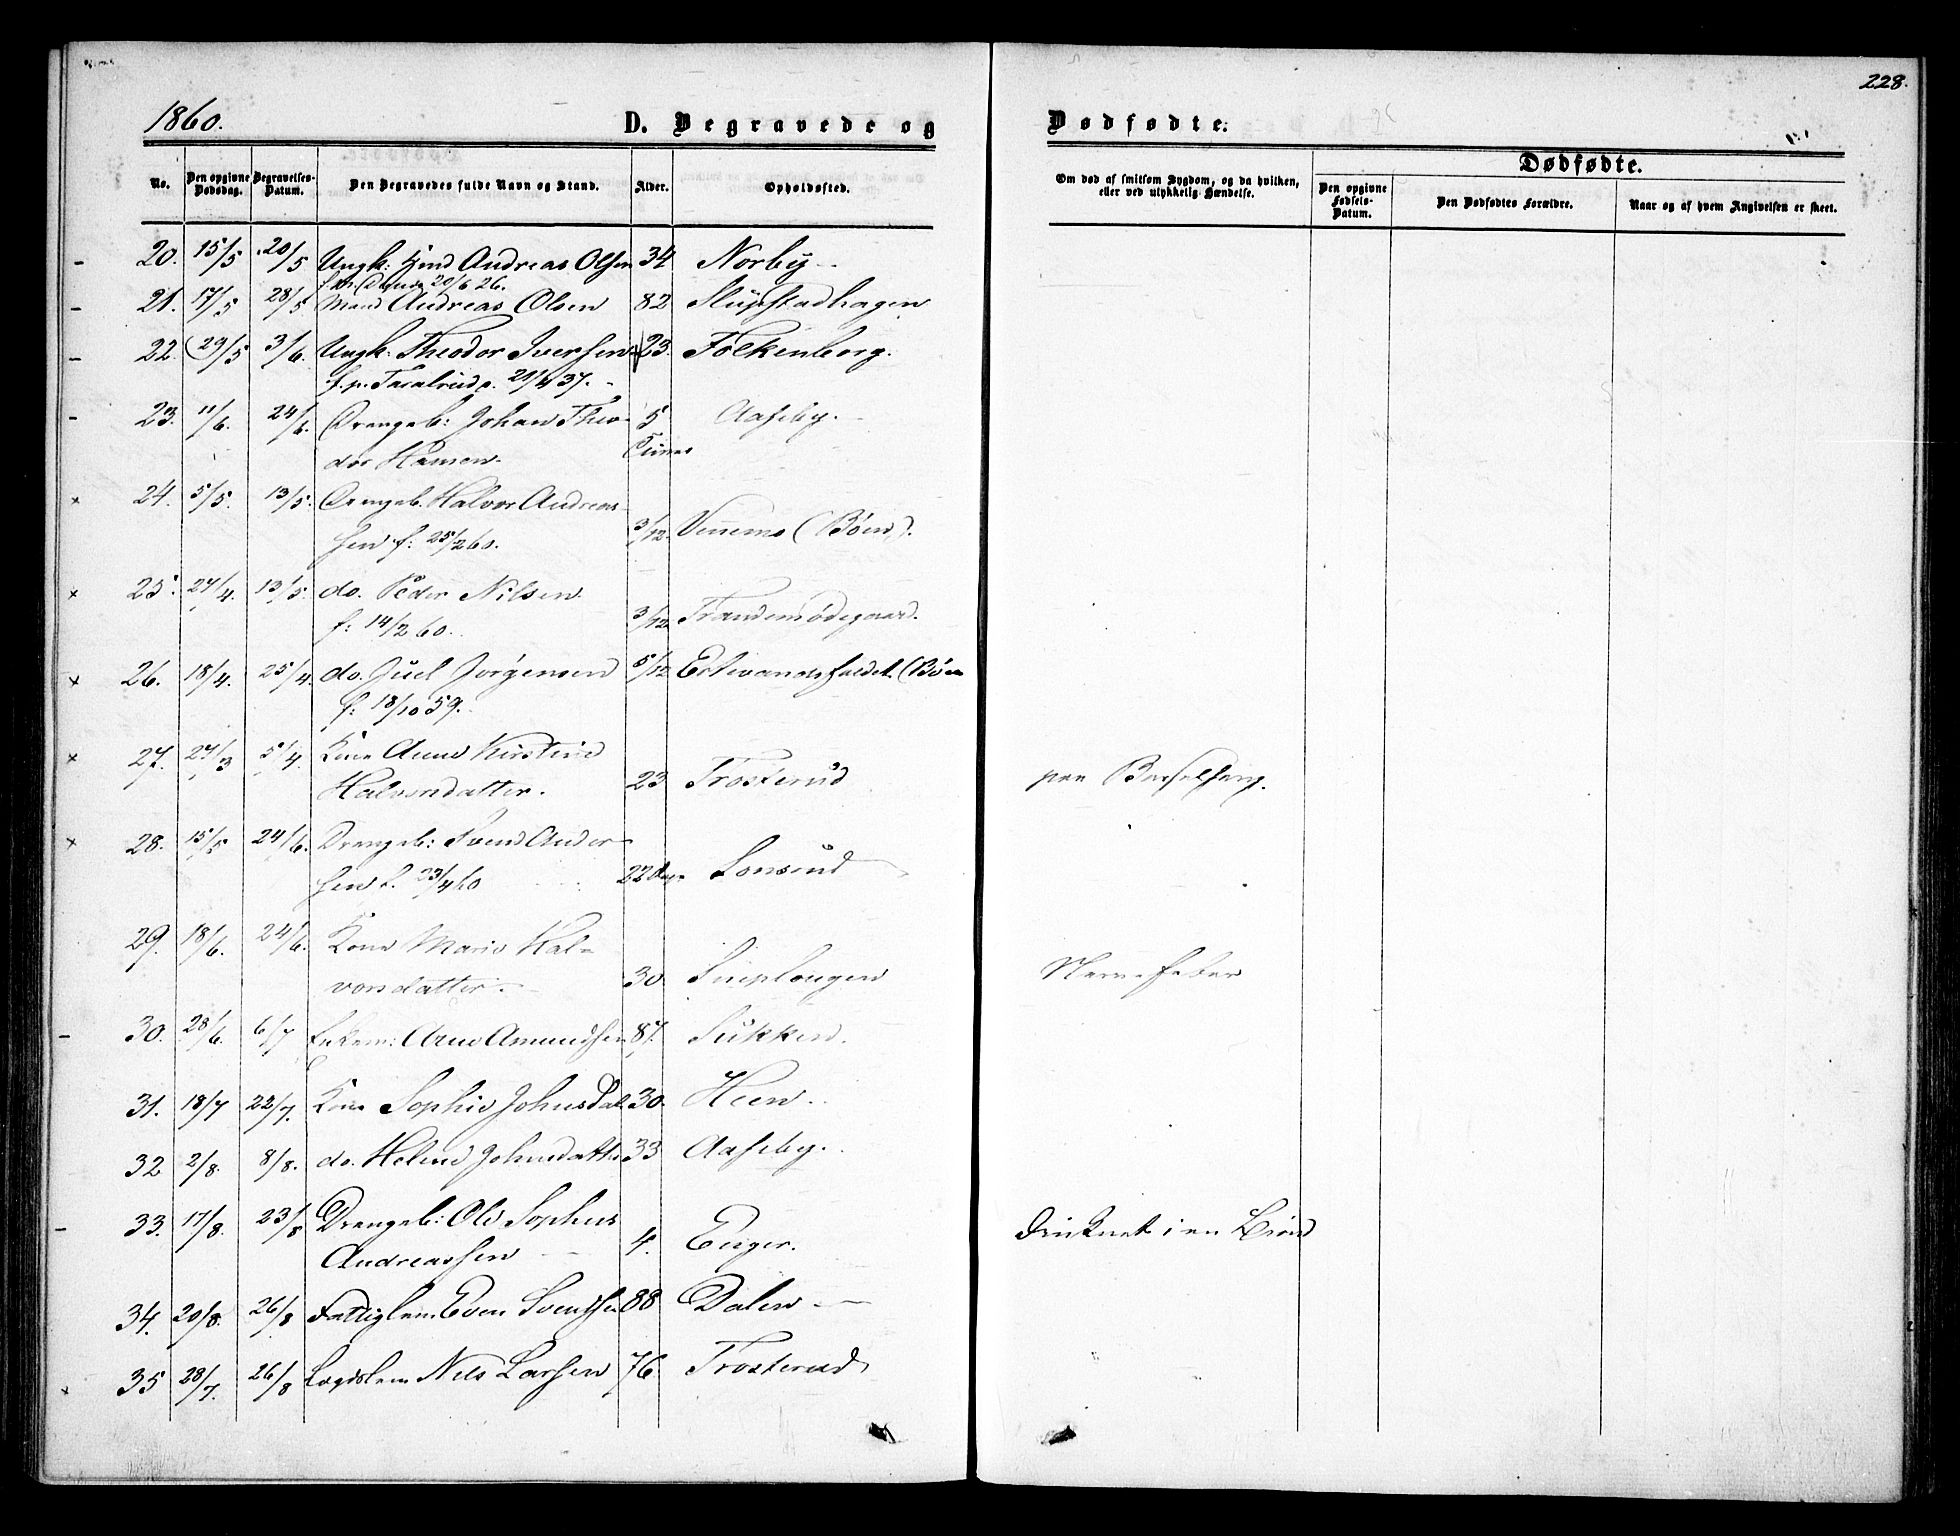 228.
1860.
D. Begravede og
Dødfødte.
No.
Den opgivne Dødsdag.
Begravelses-Datum.
Den Begravedes fulde Navn og Stand.
Alder.
Opholdssted.
Om død af smitsom Sygdom, og da hvilken, eller ved ulykkelig Hændelse.
Dødfødte.
Den opgivne Fødsels-Datum.
Den Dødfødtes Forældre.
Naar og af hvem Angivelsen er skeet.
20. 15/5 20/5 Ungk: Andreas Olsen 34 Norby
20/6 26.
21. 17/5 28/5 Mand Andreas Olsen 82 Slupstadhagen
22. 29/5 3/6. Ungk: Theodor Iversen 23. Folkenborg.
f. p. 21/4 37.
23. 11/6. 24/6. Drengeb: Johan Theo- 5 Aaseby.
dor Hansen. Timer
24. 5/5. 13/5. Drengeb. Halvor Andreas-
sen f: 25/2 60. 3/12. (Böen).
25. 27/4. 13/5. do. Peder Nilsen
f: 14/2 60. 3/12. Trandemsödegaard.
26. 18/4. 25/4. do. Juel Jørgensen 5/12 (Böen
f: 18/10 59.
27. 27/3 5/4. Kone Anne Kirstine
Halvorsdatter. 23 Trosterud paa Barselseng.
28. 15/5 24/6. Drengeb: Svend Ander-
sen f. 23/4 60 22 Dage Sonsrud
29. 18/6. 24/6. Kone Marie Hal-
vorsdatter. 30. Nervefeber
30. 28/6. 6/7 Enkem: Arne Amundsen 87. Sukken.
31. 18/7 22/7. Kone Sophie Johnsdat. 30. Heen.
32 2/8. 8/8. do. Helene Johnsdatter 33 Aaseby.
33. 17/8. 23/8 Drengeb: Ole Sophus
Andreassen 4. Enger. Druknet i en Brønd
34. 20/8. 26/8 Fattiglem. Even Svendsen 88 Dalen
35 28/7. 26/8 Lægdslem Nils Larsen 76. Trosterud